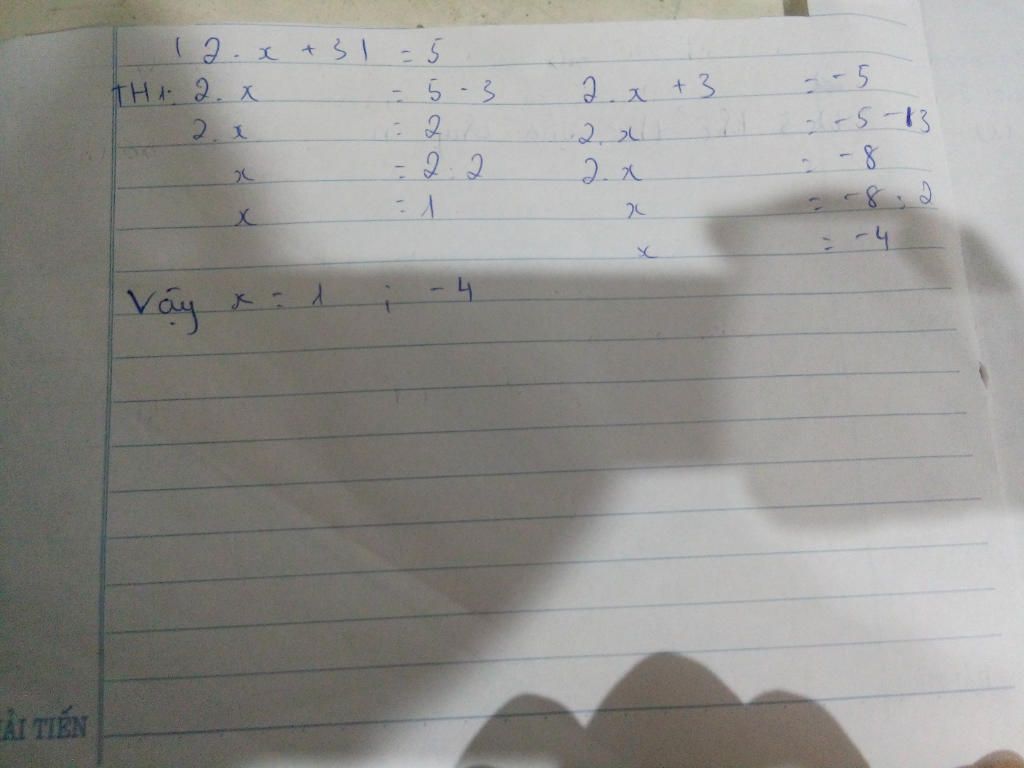 | 2. x + 3 | = 5
TH1: 2. x = 5 - 3 2. x + 3 = - 5
2. x = 2 2. x = - 5 - 13
x = 2 : 2 2. x = - 8
x = 1 x = - 8 : 2
x = - 4
Vậy x = 1 ; - 4
ẢI TIẾN